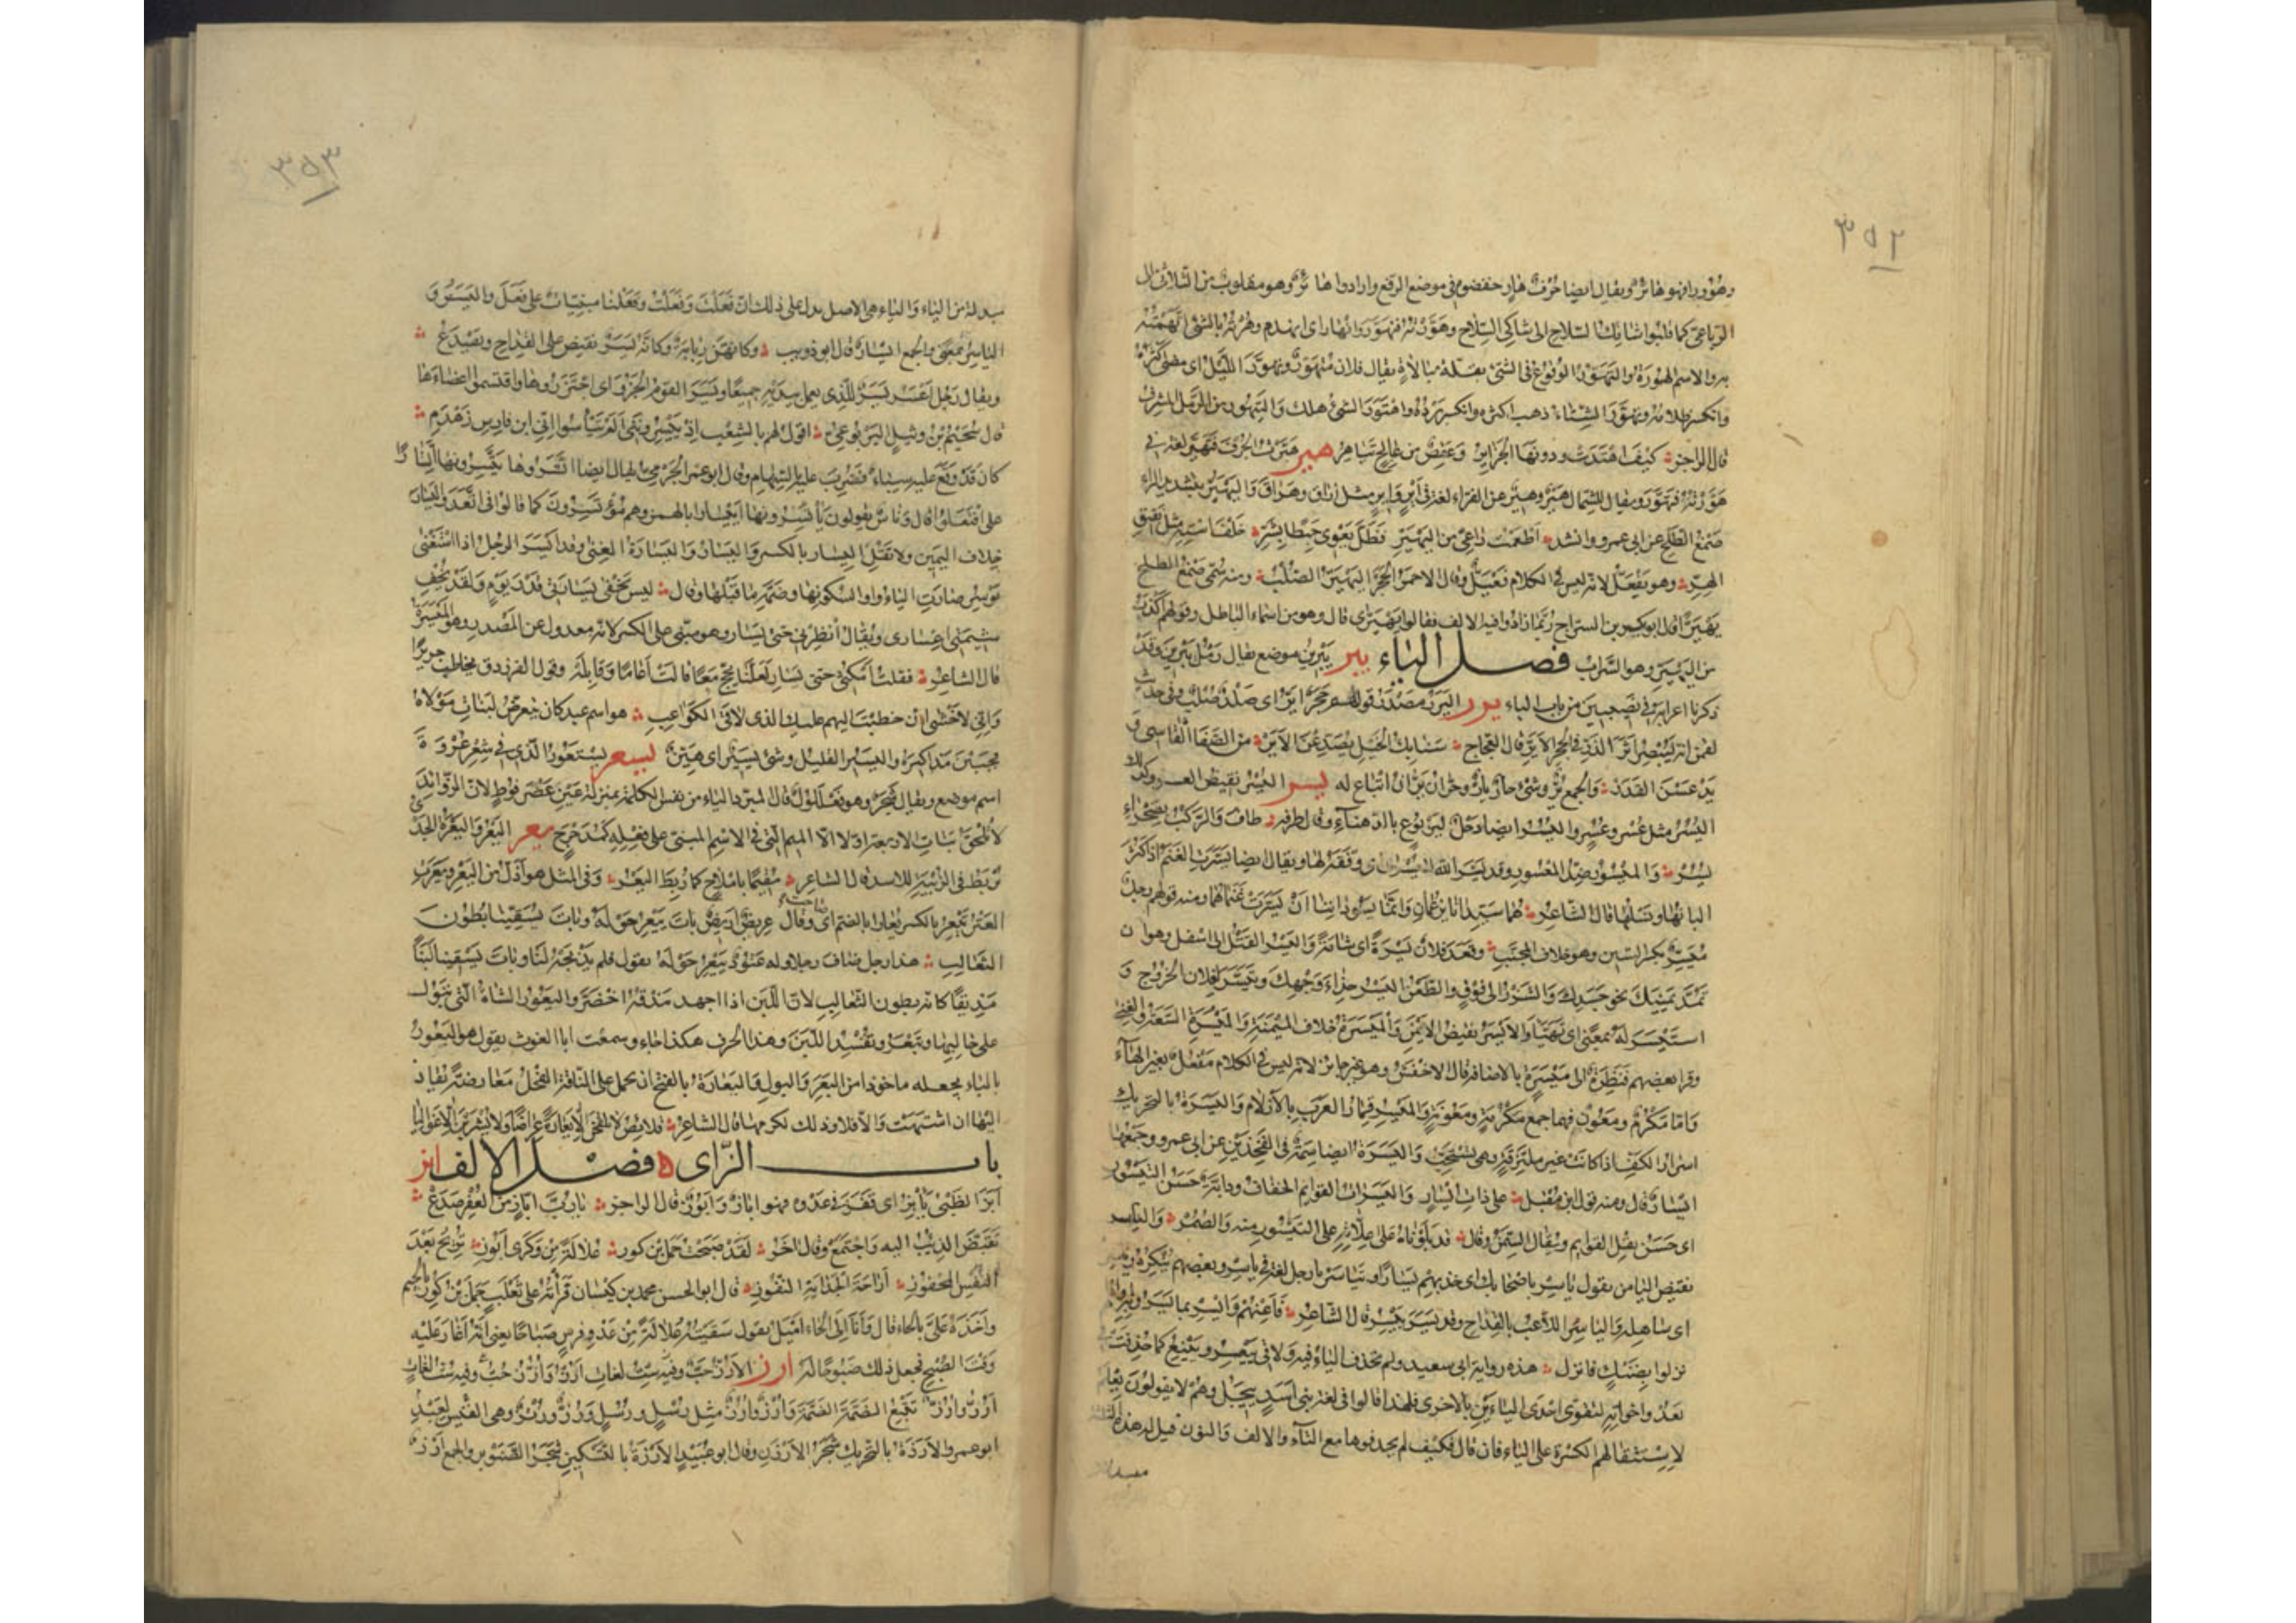 ٣٥٢
وهوور فهو هائر ويقال ايضا جرف هار خفضوه في موضع الرفع وارادوا هائر وهو مقلوب من الثلاثي الى
الرباعي كما قلبوا شائك السلاح الى شاكي السلاح وهوّرته فتهوّر وانهار اى انهدم وهرته بالشئ اتهمته
به والاسم الهورة والتهوّر الوقوع في الشئ بقلة مبالاة يقال فلان متهوّر وتهوّر الليل اى مضى اكثره
وانكسر ظلامه وتهوّر الشتاء ذهب اكثره وانكسر برده واهتور الشئ هلك والتيهور من الرمل المشرف
قال الراجز كيف اهتدت ودونها الجزاير وعقص من عالج تياهر هير هيّرت الجرف فتهيّر لغة في
هوّرته فتهوّر ويقال للشمال هير وهيّر عن الفراء لغة في اير واير مثل اراق وهراق واليهيرّ بتشديد الراء
صمغ الطلح عن ابى عمرو وانشد اطعمت راعى من اليهيرّ فظل يعوى حبطا بشرّ خلف استه مثل نقيق
الهرّ وهو يفعلّ لانه ليس في الكلام فعيلّ وقال الاحمر الحجر اليهيرّ الصلب ومنه سمى صمغ الطلح
يهيرّا قال ابو بكر بن السراج ربما زادوا فيه الالف فقالوا يهيرّى قال وهو من اسماء الباطل وقولهم اكذب
من اليهير وهو السراب فصل الياء يبر يبرين موضع يقال رمل يبرين وقد
ذكرنا اعرابه في نصيبين من باب الباء يرر اليرر مصدر قولهم حجر ايرّ اى صلد صلب وفي حديث
لقمن انه ليبصر اثر الذر في الحجر الايرّ قال العجاج سنابك الخيل يصدعن الايرّ من الصفا القاسى و
يدعسن الغدر والجمع يرّ وشئ حارّ يارّ وحرّان يرّان اتباع له يسر اليسر نقيض العسر وكذلك
اليسر مثل عسر وعسر واليسر ايضا دحل لبنى يربوع بالدهناء وقال طرفة طاف والركب بصحراء
يسر والميسور ضدّ المعسور وقد يسّره الله لليسرى اى وفقه لها ويقال ايضا يسّرت الغنم اذا كثر
البانها ونسلها قال الشاعر هما سيّدانا يزعمان وانما يسوداننا ان يسّرت غنماهما ومنه قولهم رجل
ميسّر بكسر السين وهو خلاف المجنّب وقعد فلان يسرة اى شامة واليسر الفتل الى اسفل وهو ان
تمدّ يمينك نحو جسدك والشزر الى فوق والطعن اليسر حذاء وجهك وتيسّر لفلان الخروج و
استيسر له بمعنى اى تهيّا والايسر نقيض الايمن والميسرة خلاف الميمنة والميسرة السعة والغنى
وقرا بعضهم فنظرة الى ميسره بالاضافة قال الاخفش وهو غير جائز لانه ليس في الكلام مفعل بغير الهاء
وامّا مكرم ومعون فهما جمع مكرمة ومعونة والميسر قمار العرب بالازلام واليسرة بالتحريك
اسرار الكفّ اذا كانت غير ملتزقة وهى تستحبّ واليسرة ايضا سمة في الفخذين عن ابى عمرو وجمعها
ايسار قال ومنه قول ابن مقبل على ذات ايسار واليسرات القوايم الخفاف ودابّة حسن التيسور
اى حسن نقل القوايم ويقال السمن وقال قد بلوناه على علاته وعلى التيسور منه والضمر والياسر
نقيض اليامن يقول ياسر باصحابك اى خذ بهم يسارا وتياسر يا رجل لغة في ياسر وبعضهم ينكره
اى ساهله والياسر اللاعب بالقداح وقد يسر ييسر قال الشاعر فاعنهم وايسر بما يسروا به واذا هم
نزلوا بضنك فانزل هذه رواية ابى سعيد ولم تحذف الياء فيه ولا في ييعر وييفع كما حذفت في
يعد واخواته لتقوى احدى الياءين بالاخرى فلهذا قالوا في لغة بنى اسد ييجل وهم لا يقولون يعلم
لاستثقالهم الكسرة على الياء فان قال فكيف لم يحذفوها مع التاء والالف والنون قيل له هذه الثلثة
مبدلة
٣٥٣
مبدلة من الياء والياء هى الاصل يدل على ذلك ان فعلت وفعلت وفعلنا مبنيات على فعل واليسر و
الياسر بمعنى والجمع ايسار قال ابو ذويب وكانهن ربابة وكانه يسر يفيض على القداح ويصدع
ويقال رجل اعسر يسر للذى يعمل بيديه جميعا ويسر القوم الجزور اى اجتزروها واقتسموا اعضاءها
قال سحيم بن وثيل اليربوعى اقول لهم بالشعب اذ ييسروننى الم تيأسوا انى ابن فارس زهدم
كان قد وقع عليه سباء فضرب عليه بالسهام وقال ابو عمر الجرمى يقال ايضا اتسروها يتسرونها اتسارا
على افتعلوا قال وناس يقولون يأتسرونها ايتسارا بالهمز وهم مؤتسرون كما قالوا في اتعد واليسار
خلاف اليمين ولا تقل اليسار بالكسر واليسار واليسارة الغنى وقد ايسر الرجل اذا استغنى
يوسر صارت الياء واوا لسكونها وضمة ما قبلها وقال ليس تخفى يسارتى قدر يوم ولقد يخف
شيمتى اعسارى ويقال انظرنى حتى يسار وهو مبنى على الكسر لانه معدول عن المصدر وهو الميسرة
قال الشاعر فقلت امكثى حتى يسار لعلنا نحج معا قالت اعاما وقابله وقول الفرزدق يخاطب جريرا
وانى لاخشى ان خطبت اليهم عليك الذى لاقى يسار الكواعب هو اسم عبد كان يتعرض لبنات مولاه
فجببن مذاكيره واليسير القليل وشئ يسير اى هين يستعر يستعور الذى في شعر عروة
اسم موضع ويقال شجر وهو فعللول قال المبرد الياء من نفس الكلمة بمنزلة عين عضرفوط لان الزوائد
لا تلحق بنات الاربعة اولا الا الميم التى في الاسم المبنى على فعله كمدحرج يعر اليعر واليعرة الجدى
يربط في الزبية للاسد قال الشاعر مقيما باملاح كما ربط اليعر وفى المثل هو اذل من اليعر ويعرت
العنز تيعر بالكسر يعارا بالضم اى صاحت وقال عريض اريض بات ييعر حوله وبات يسقينا بطون
الثعالب هذا رجل ضاف رجلا وله عتود ييعر حوله يقول فلم يذبحه لنا وبات يسقينا لبنا
مذيقا كانه بطون الثعالب لان اللبن اذا اجهد مذقه اخضر واليعور الشاة التى تبول
على حالبها وتبعر وتفسد اللبن وهذا الحرف هكذا جاء وسمعت ابا الغوث يقول هو البعور
بالباء يجعله ماخوذا من البعر والبول واليعارة بالفتح ان يحمل على الناقة الفحل معارضة يقاد
اليها ان اشتهت والا فلا وذلك لكرمها قال الشاعر قلائص لا يلقحن الا يعارة عراضا ولا يشرين الا غواليا
باب الزاى فصل الالف ابز
ابز الظبى يأبز اى قفز في عدوه فهو اباز وابوز قال الراجز يا رب اباز من العفر صدع
تقبض الذيب اليه واجتمع وقال اخر لقد صبحت حمل بن كوز علالة من وكرى ابوز تريح بعد
النفس المحفوز اراحة الجداية النفوز قال ابو الحسن محمد بن كيسان قرأته على ثعلب جمل بن كوز بالجيم
واخذه علىّ بالحاء قال وانا الى الحاء اميل يقول سقيته علالة من عدو فرس صباحا يعنى انه اغار عليه
وقت الصبح فجعل ذلك صبوحا له ارز الارز حب وفيه ست لغات ارز وارز
ارز وارز تتبع الضمة الضمة وارز وارز مثل رسل ورسل ورز ورنز وهى لعبد القيس
ابو عمرو الارزة بالتحريك شجر الارزن وقال ابو عبيد الارزة بالتسكين شجر الصنوبر والجمع ارز